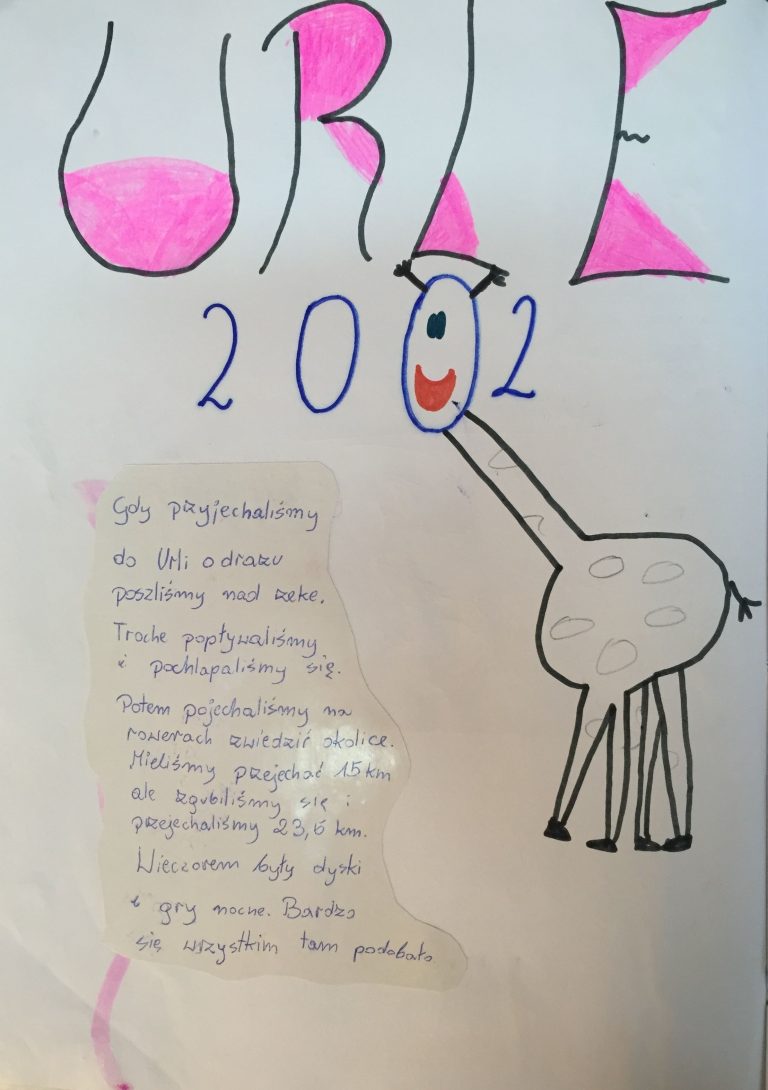 URLE
2002
Gdy przyjechaliśmy
do Urli odrazu
poszliśmy nad rzeke.
Troche popływaliśmy
i pochlapaliśmy się.
Potem pojechaliśmy na
rowerach zwiedzić okolice.
Mieliśmy przejechać 15 km
ale zgubiliśmy się i
przejechaliśmy 23,6 km.
Wieczorem były dyski
i gry nocne. Bardzo
się wszystkim tam podobało.